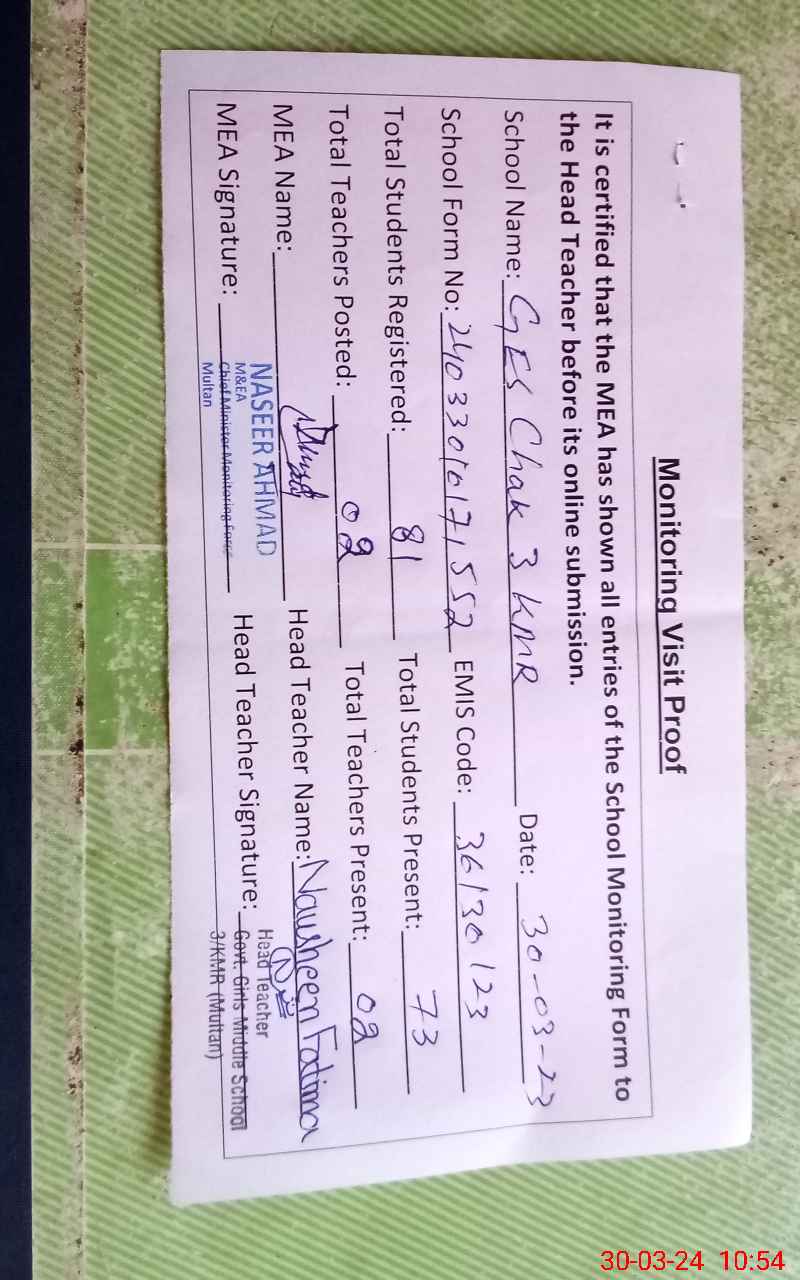 Monitoring Visit Proof
It is certified that the MEA has shown all entries of the School Monitoring Form to
the Head Teacher before its online submission.
School Name: GES Chak 3 KMR Date: 30-03-23
School Form No: 24033010171552 EMIS Code: 36130123
Total Students Registered: 81 Total Students Present: 73
Total Teachers Posted: 02 Total Teachers Present: 02
MEA Name: Head Teacher Name: Nawsheen Fatima
NASEER AHMAD
M&EA
Chief Minister Monitoring Force
Multan
MEA Signature: Head Teacher Signature:
Head Teacher
Govt. Girls Middle School
3/KMR (Multan)
30-03-24 10:54